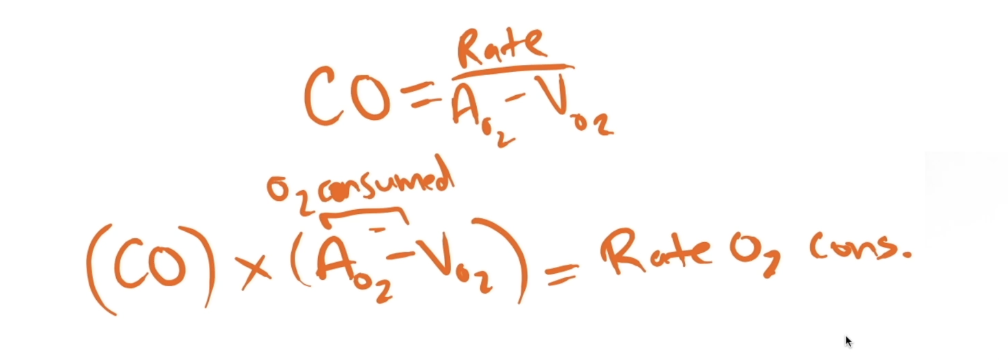 CO = Rate / A_O2 - V_O2
O2 consumed
(CO) × (A_O2 - V_O2) = Rate O2 cons.